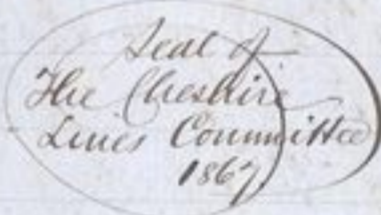 Seal of
The Cheshire
Lines Committee
1867.